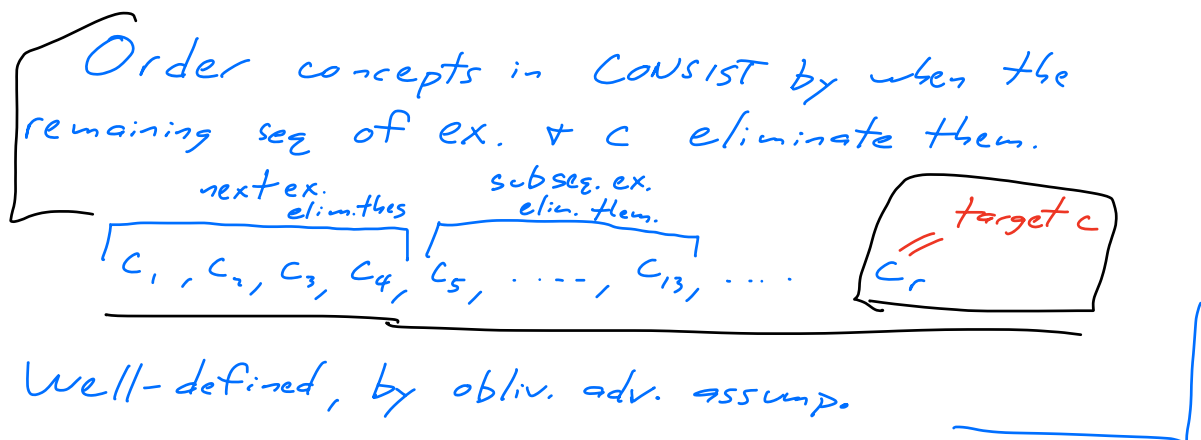 Order concepts in CONSIST by when the
remaining seq of ex. & c eliminate them.
next ex. elim. thes
subseq. ex. elim. them.
target c
C₁, C₂, C₃, C₄, C₅, ...., C₁₃, .... Cᵣ
Well-defined, by obliv. adv. assump.